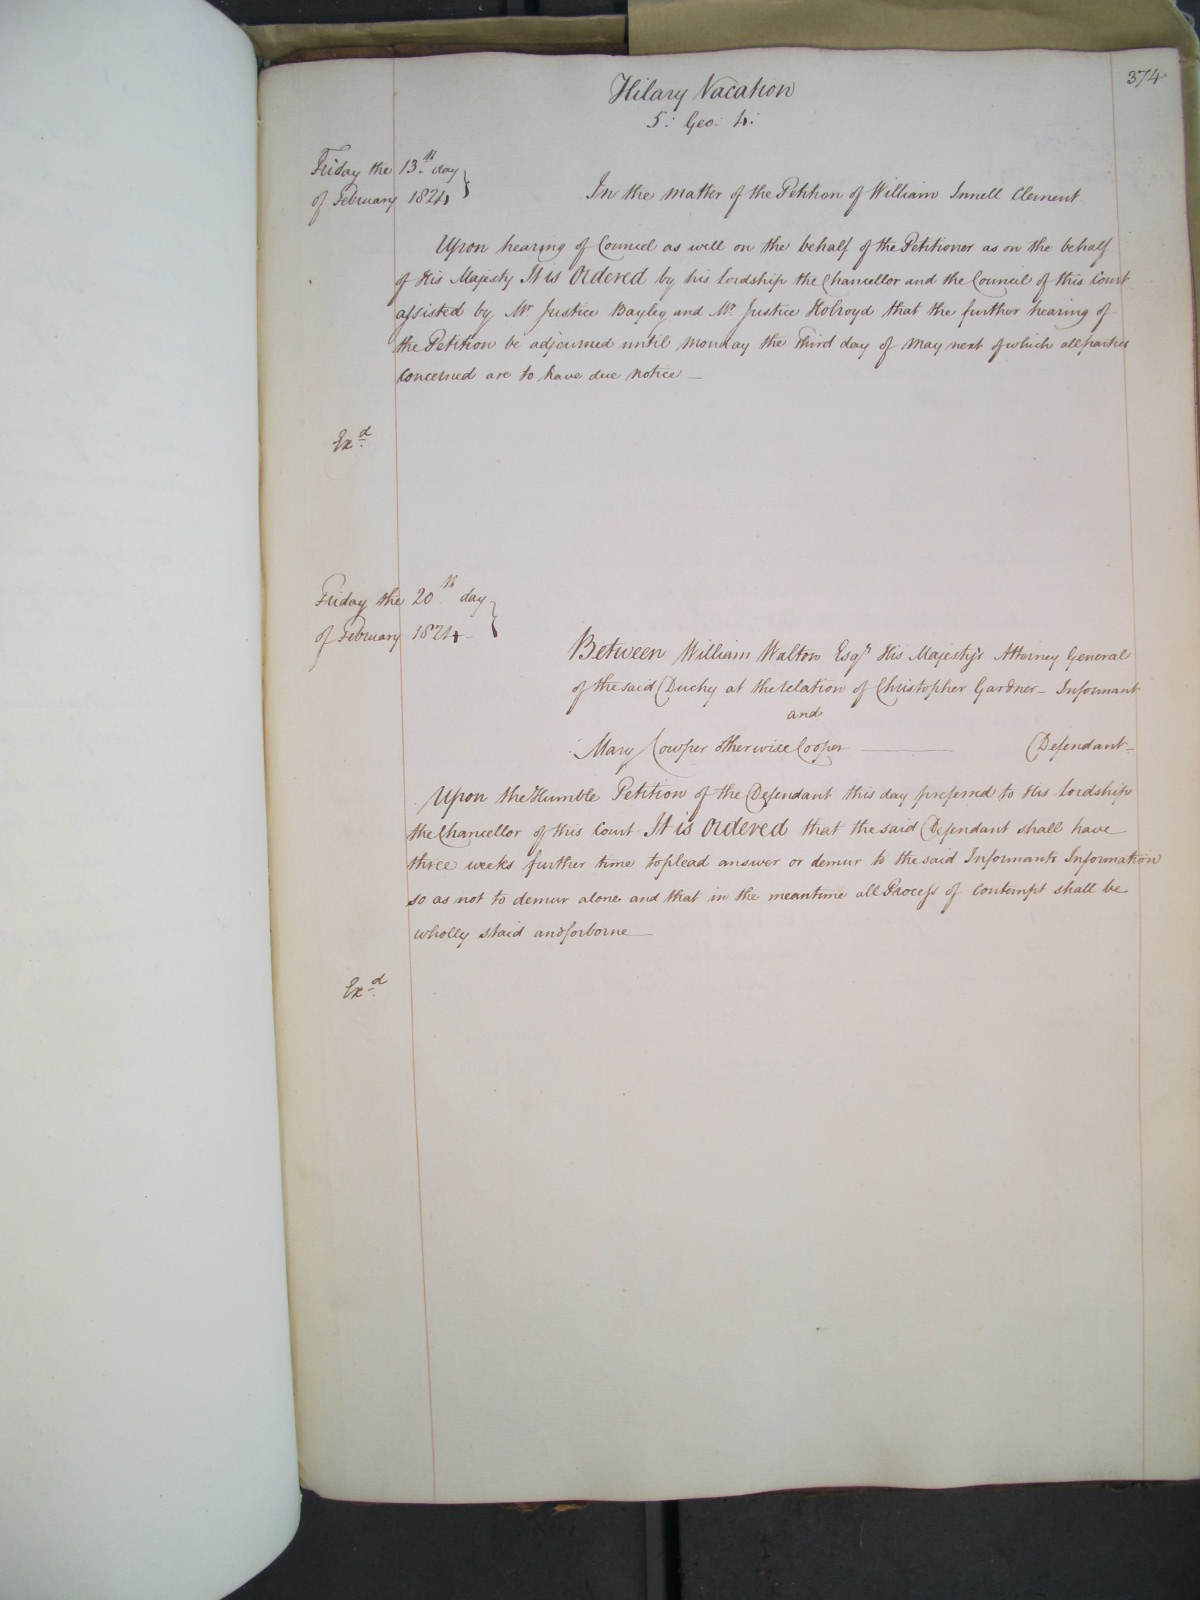 374
Hilary Vacation
5: Geo: 4:
Friday the 13th day
of February 1824
In the matter of the Petition of William Innell Clement
Upon hearing of Council as well on the behalf of the Petitioner as on the behalf
of His Majesty It is Ordered by his Lordship the Chancellor and the Council of this Court
assisted by Mr. Justice Bayley and Mr. Justice Holroyd that the further hearing of
the Petition be adjourned until Monday the Third day of May next of which all parties
Concerned are to have due notice —
Exd.
Friday the 20th day
of February 1824
Between William Walton Esqr His Majesty's Attorney General
of the said Duchy at the relation of Christopher Gardner — Informant
and
Mary Cowper otherwise Cooper — Defendant
Upon the Humble Petition of the Defendant this day preferred to His Lordship
the Chancellor of this Court It is Ordered that the said Defendant shall have
three weeks further time to plead answer or demur to the said Informants Information
so as not to demur alone and that in the meantime all Process of Contempt shall be
wholly staid and forborne —
Exd.